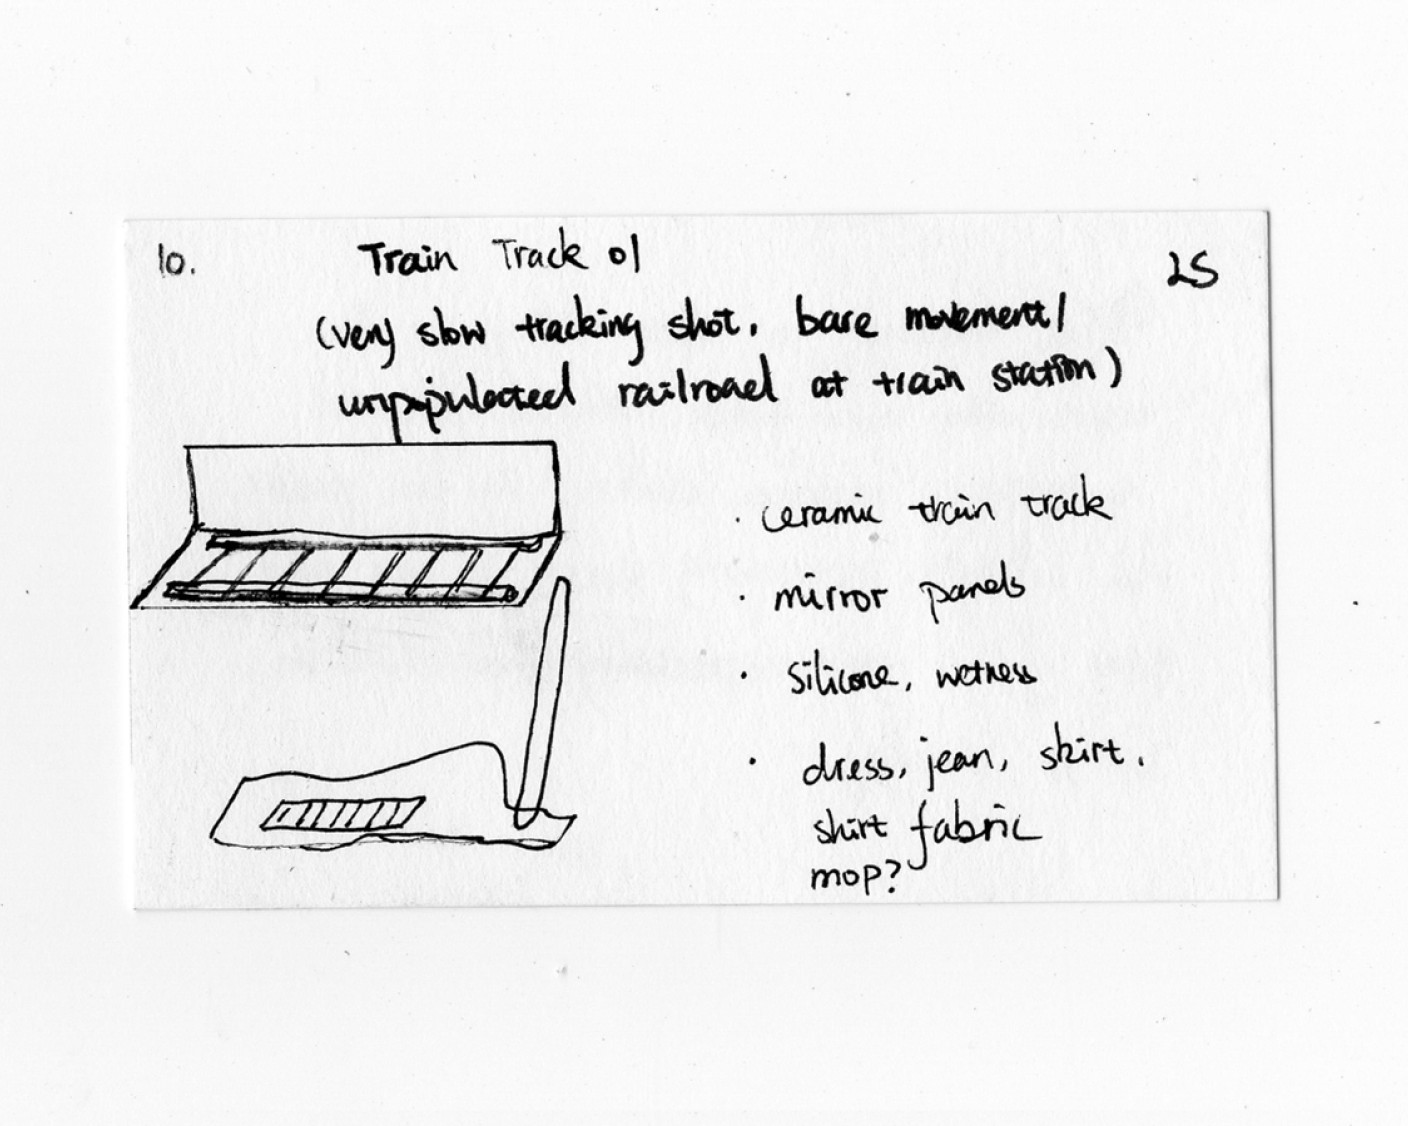 10.
Train Track 01
LS
(very slow tracking shot, bare movement/
unpopulated railroad at train station)
· ceramic train track
· mirror panels
· silicone, wetness
· dress, jean, skirt.
shirt fabric
mop?